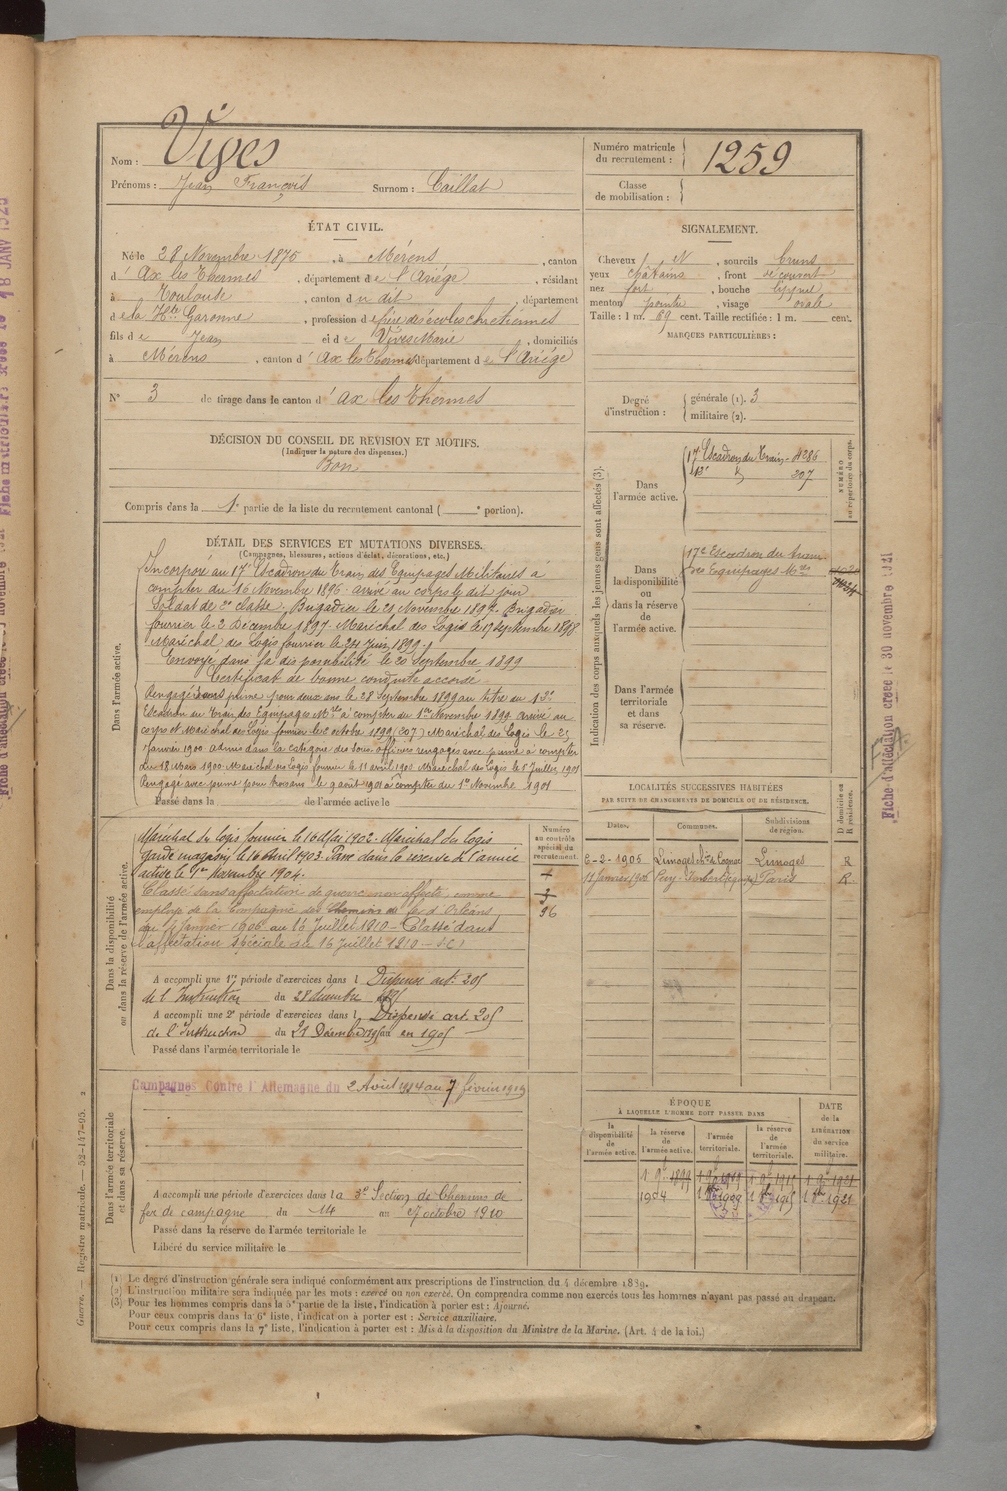 Nom : Vives
Prénoms : Jean François Surnom : Caillat
Numéro matricule du recrutement : 1259
Classe de mobilisation :
ÉTAT CIVIL.
Né le 28 Novembre 1875, à Mérens, canton
d' Ax les Thermes, département de l'Ariége, résidant
à Toulouse, canton du dit, département
de la Hte Garonne, profession de frère des écoles chrétiennes
fils de Jean et de Vives Marie, domiciliés
à Mérens, canton d' Ax les Thermes département de l'Ariége
N° 3 de tirage dans le canton d' Ax les Thermes
SIGNALEMENT.
Cheveux N, sourcils bruns
yeux châtains, front découvert
nez fort, bouche
menton pointu, visage ovale
Taille : 1 m. 69 cent. Taille rectifiée : 1 m. cent.
MARQUES PARTICULIÈRES :
Degré d'instruction : générale (1). 3
militaire (2).
DÉCISION DU CONSEIL DE REVISION ET MOTIFS.
(Indiquer la nature des dispenses.)
Bon
Compris dans la 1e partie de la liste du recrutement cantonal ( e portion).
DÉTAIL DES SERVICES ET MUTATIONS DIVERSES.
(Campagnes, blessures, actions d'éclat, décorations, etc.)
Dans l'armée active.
Incorporé au 17e Escadron du Train des Equipages Militaires à
compter du 16 Novembre 1896. arrivé au corps le dit jour
Soldat de 2e classe. Brigadier le 21 Novembre 1897. Brigadier
fourrier le 2 Décembre 1897. Maréchal des Logis le 17 Septembre 1898
Maréchal des Logis fourrier le 24 Juin 1899.
Envoyé dans la disponibilité le 20 Septembre 1899
Certificat de bonne conduite accordé
Rengagé sans prime pour deux ans le 28 Septembre 1899 au titre du 13e
Escadron du Train des Equipages Mres à compter du 1er Novembre 1899 arrivé au
corps et Maréchal des Logis fourrier le 2 octobre 1899 (207) Maréchal des Logis le 25
Janvier 1900. admis dans la catégorie des sous officiers rengagés avec prime à compter
du 18 Mars 1900. Maréchal des Logis fourrier le 11 avril 1900 Maréchal des Logis le 5 Juillet 1901
Rengagé avec prime pour trois ans le 9 août 1901 à compter du 1er Novembre 1901
Passé dans la de l'armée active le
Indication des corps auxquels les jeunes gens sont affectés (3).
NUMÉRO au répertoire du corps.
Dans l'armée active.
17e Escadron du Train - 4286
13e 207
Dans la disponibilité ou dans la réserve de l'armée active.
17e Escadron du train
des Equipages Mres
Dans l'armée territoriale et dans sa réserve.
Dans la disponibilité ou dans la réserve de l'armée active.
Maréchal des logis fourrier le 16 Mai 1902. Maréchal des Logis
garde magasin le 16 Avril 1903. Passé dans la réserve de l'armée
active le 1er Novembre 1904.
Classé sans affectation de guerre non affecté, comme
employé de la Compagnie des Chemins de fer d'Orléans
du 4 Janvier 1906 au 16 Juillet 1910 - Classé dans
l'affectation spéciale au 16 Juillet 1910
Numéro au contrôle spécial du recrutement.
A accompli une 1re période d'exercices dans l Dispensé art. 205
de l'Instruction du 28 décembre
A accompli une 2e période d'exercices dans l Dispensé art. 205
de l'Instruction du en 1905
Passé dans l'armée territoriale le
LOCALITÉS SUCCESSIVES HABITÉES
PAR SUITE DE CHANGEMENTS DE DOMICILE OU DE RÉSIDENCE.
Dates. Communes. Subdivisions de région. D domicile ou R résidence.
2-2-1905 Limoges Limoges R
Janvier 1906 Paris R
Dans l'armée territoriale et dans sa réserve.
Campagnes Contre l'Allemagne du 2 Août 1914 au 7 février 1919
A accompli une période d'exercices dans la 3e Section de Chemins de
fer de campagne du 14 au 27 octobre 1910
Passé dans la réserve de l'armée territoriale le
Libéré du service militaire le
ÉPOQUE À LAQUELLE L'HOMME DOIT PASSER DANS
la disponibilité de l'armée active. la réserve de l'armée active. l'armée territoriale. la réserve de l'armée territoriale.
DATE de la LIBÉRATION du service militaire.
1904
(1) Le degré d'instruction générale sera indiqué conformément aux prescriptions de l'instruction du 4 décembre 1889.
(2) L'instruction militaire sera indiquée par les mots : exercé ou non exercé. On comprendra comme non exercés tous les hommes n'ayant pas passé au drapeau.
(3) Pour les hommes compris dans la 5e partie de la liste, l'indication à porter est : Ajourné.
Pour ceux compris dans la 6e liste, l'indication à porter est : Service auxiliaire.
Pour ceux compris dans la 7e liste, l'indication à porter est : Mis à la disposition du Ministre de la Marine. (Art. 4 de la loi.)
Guerre. — Registre matricule. — 52-147-95. 2
Fiche d'affectation créée le 30 novembre 1921